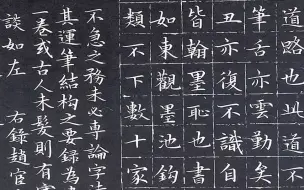 道路也此道
筆舌亦云勤矣
丑亦復不識自
皆翰墨耻也書
如東觀墨池鈎
類不下數十家
不急之務未必專論字法
其運筆結構之要録為
一卷或古人未髮則有
談如左　右録趙宧